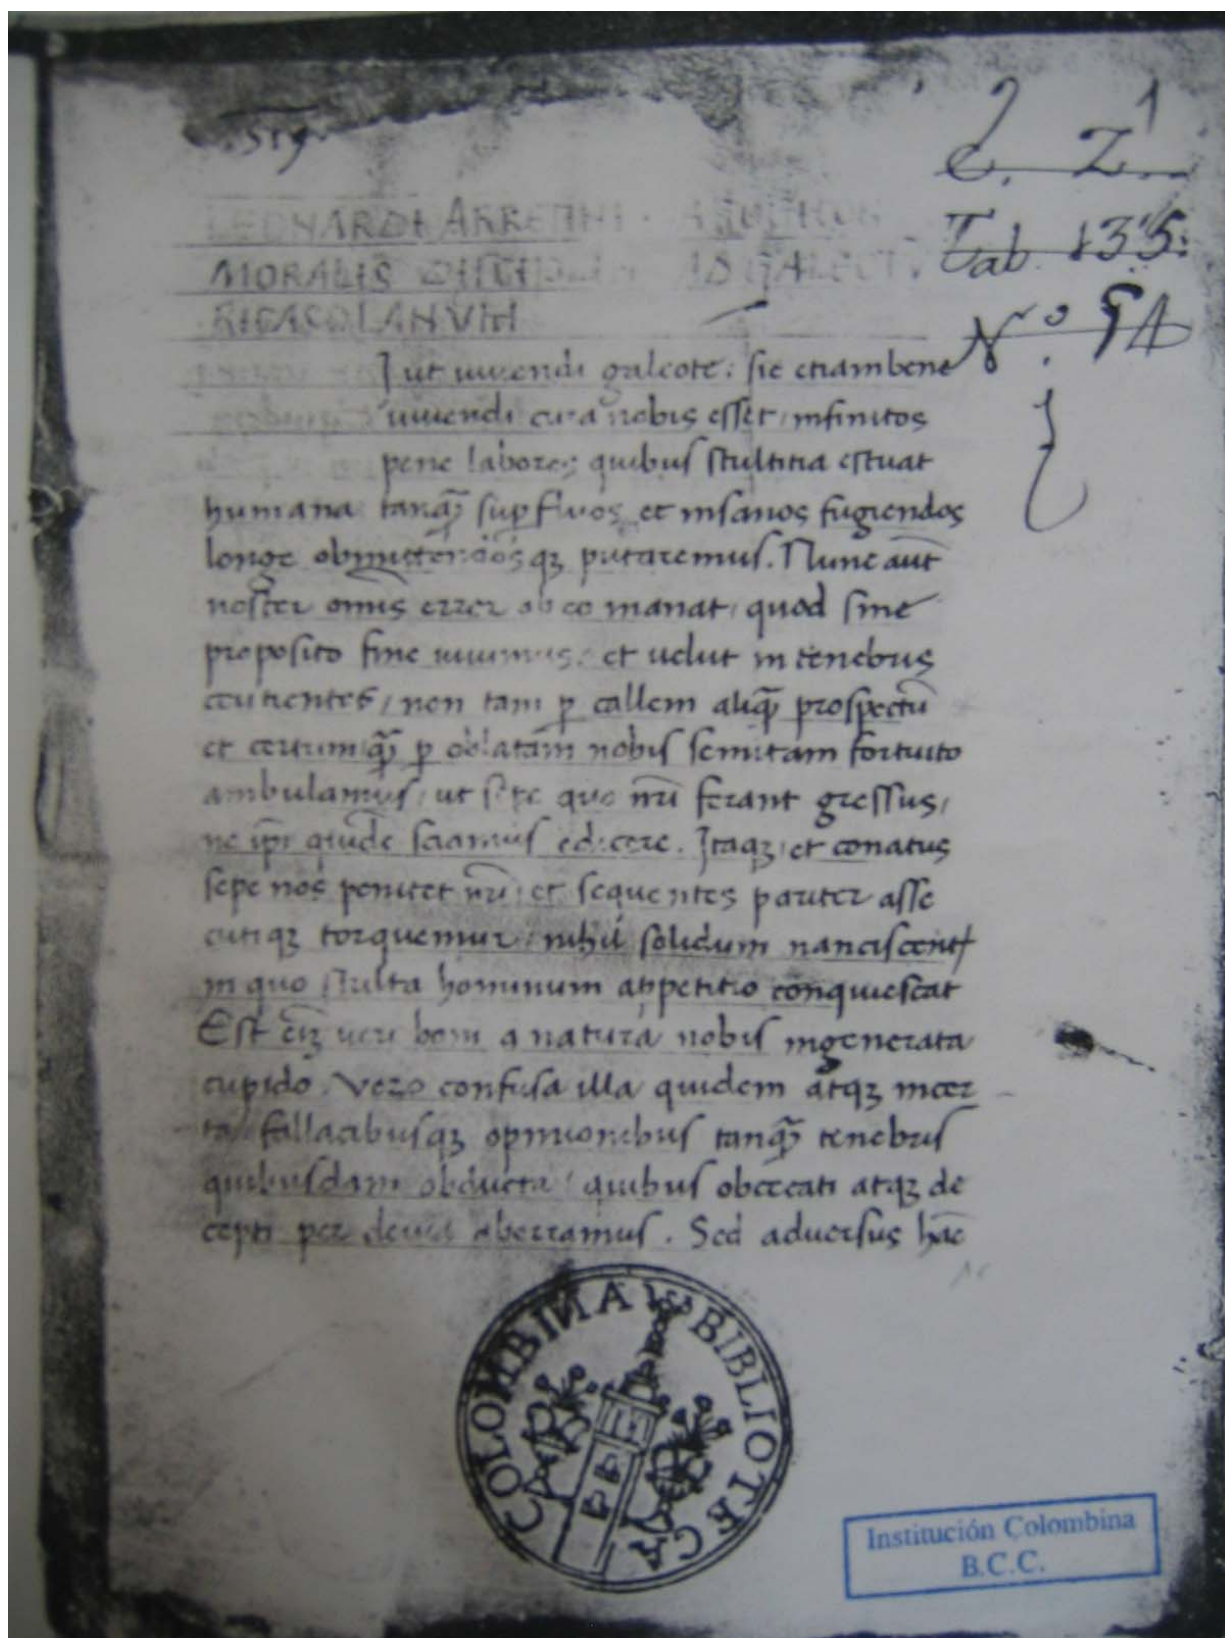 C. Z 1
Tab. 135.
N.º 54
LEONARDI ARRETINI
MORALIS AD GALEOT
RICASOLANVM
ut uiuendi galeote: sic etiam bene
uiuendi cura nobis esset, infinitos
pene labores quibus stultitia estuat
humana tanq̄ supfluos et insanos fugiendos
longe obmittendosqꝫ putaremus. Nunc aūt
noster omīs error ab eo manat, quod sine
proposito fine uiuimus, et uelut in tenebris
ceutientes, non tam ꝑ callem aliq̄ prospectū
et certum q̄ ꝑ oblatam nobis semitam fortuito
ambulamus, ut sepe quo nr̄i ferant gressus,
ne ip̄i quidē sciamus edicere. Itaqꝫ et conatus
sepe nos penitet nr̄i et sequentes pariter asse
cutiqꝫ torquemur, nihil solidum nanciscent
in quo stulta hominum appetitio conquiescat
Est eīꝫ ueri boni a natura nobis ingenerata
cupido. Vero confusa illa quidem atqꝫ incer
ta fallacibusqꝫ opinionibus tanq̄ tenebris
quibusdam obducta, quibus obcecati atqꝫ de
cepti per deuia aberramus. Sed aduersus hāc
COLOMBINA BIBLIOTECA
Institución Colombina
B.C.C.